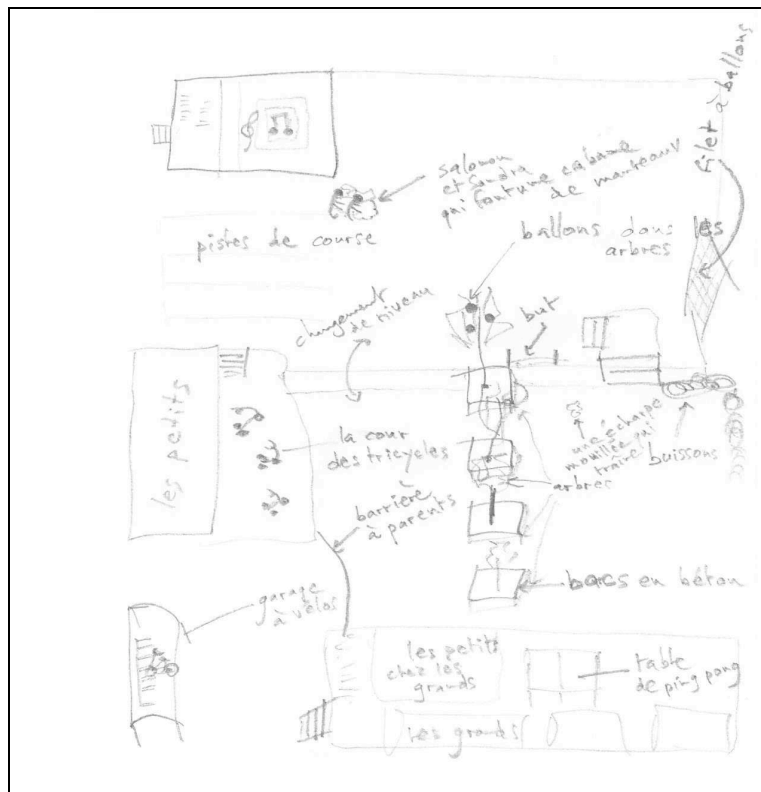 filet à ballons
salomon
et Sandra
qui font une cabane
de manteaux
pistes de course
ballons dans les
arbres
changement
de niveau
but
les petits
la cour
des tricycles
une écharpe
mouillée qui
traîne
buissons
arbres
barrière
à parents
bacs en béton
garage
à vélos
les petits
chez les
grands
table
de ping pong
les grands